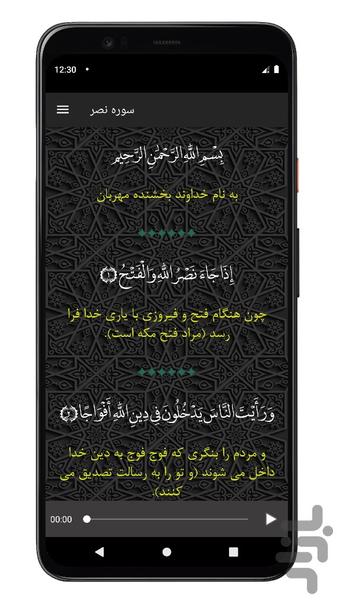 12:30
سوره نصر
بِسْمِ اللَّهِ الرَّحْمَٰنِ الرَّحِيمِ
به نام خداوند بخشنده مهربان
إِذَا جَاءَ نَصْرُ اللَّهِ وَالْفَتْحُ ﴿١﴾
چون هنگام فتح و فیروزی با یاری خدا فرا
رسد (مراد فتح مکه است).
وَرَأَيْتَ النَّاسَ يَدْخُلُونَ فِي دِينِ اللَّهِ أَفْوَاجًا ﴿٢﴾
و مردم را بنگری که فوج فوج به دین خدا
داخل می شوند (و تو را به رسالت تصدیق می
کنند).
00:00
بازار